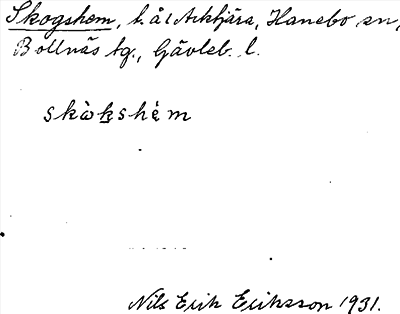 Skogshem, t. å 1 Arktjära, Hanebo sn,
Bollnäs tg., Gävleb. l.
skὰkshὲm
Nils Erik Eriksson 1931.